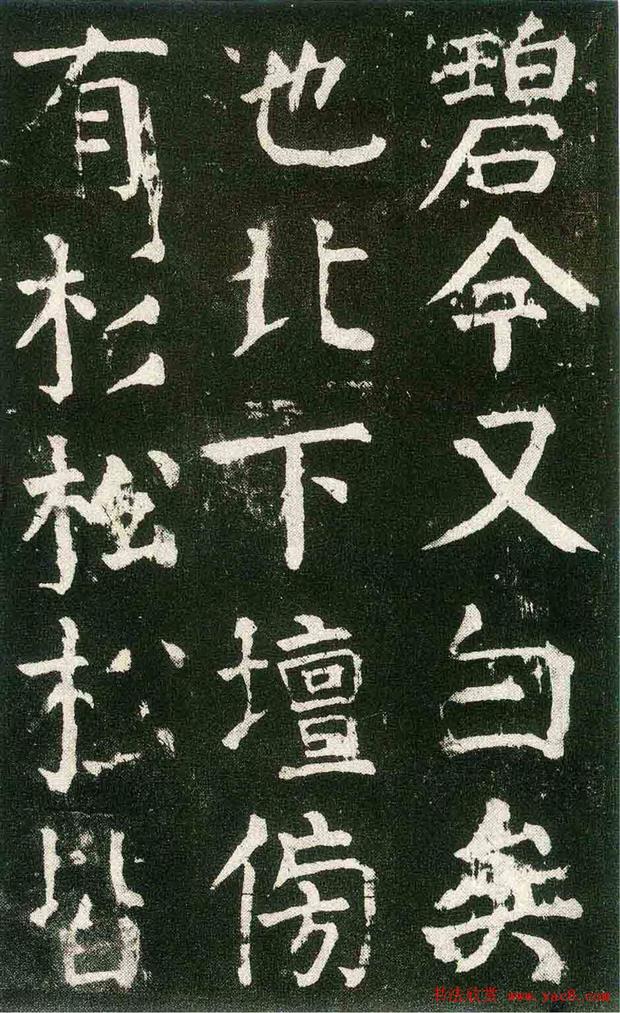 碧今又白矣
池北下壇傍
有杉松松皆
书法欣赏 www.yac8.com